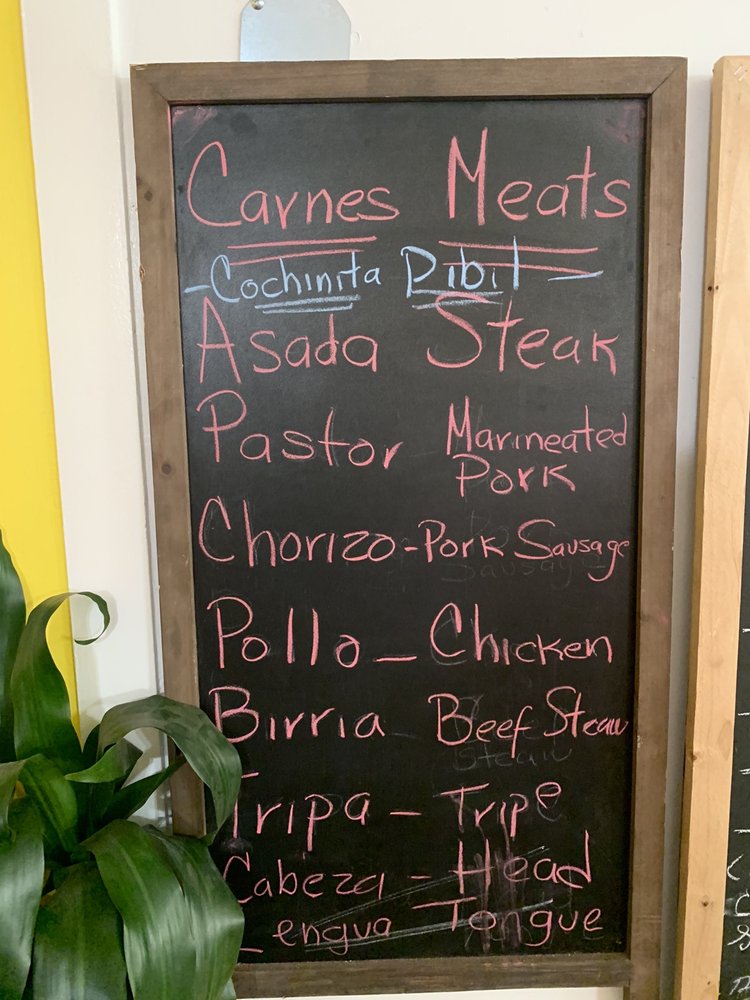 Carnes Meats
- Cochinita Pibil -
Asada Steak
Pastor Marineated
Pork
Chorizo - Pork Sausage
Pollo - Chicken
Birria Beef Steaw
Tripa - Tripe
Cabeza - Head
Lengua Tongue